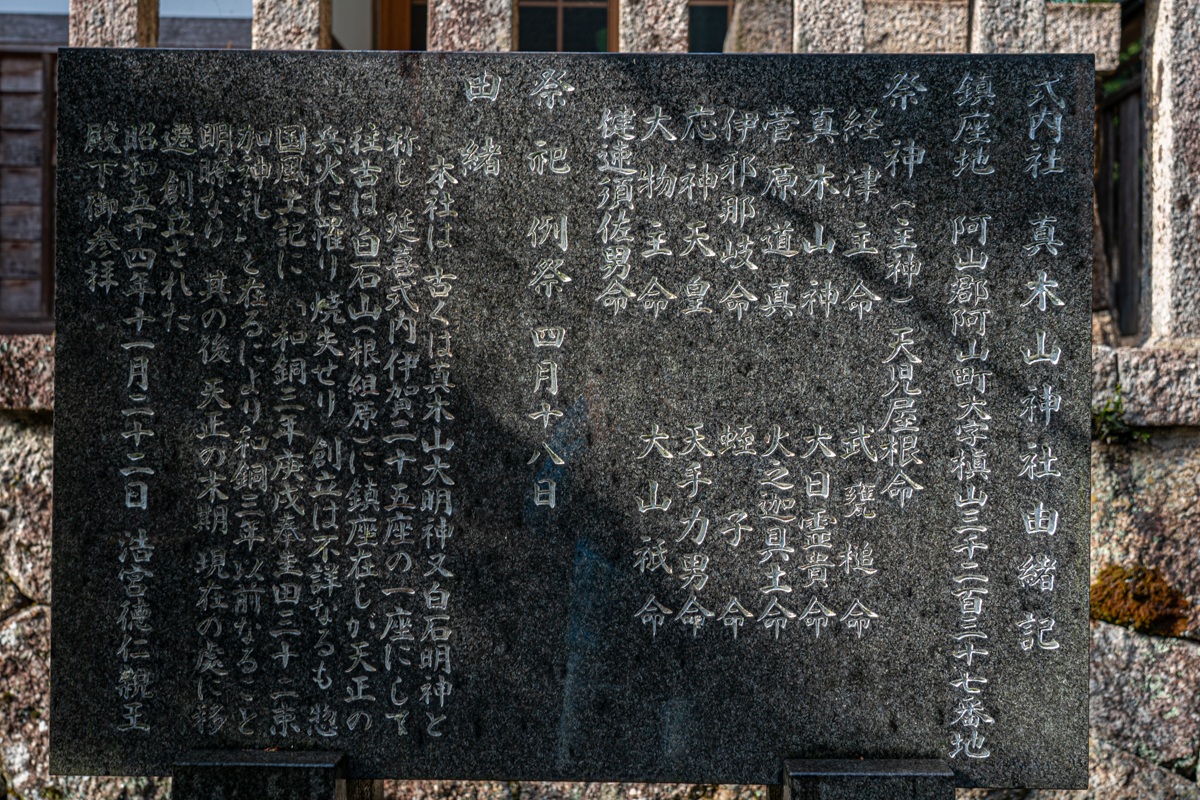 式内社 真木山神社由緒記
鎮座地 阿山郡阿山町大字槙山三千二百三十七番地
祭神(主神)天児屋根命
経津主命 武甕槌命
真木山神 大日孁貴命
菅原道真 火之迦具土命
伊邪那岐命 蛭子命
応神天皇 天手力男命
大物主命 大山祇命
健速須佐男命
祭祀 例祭 四月十八日
由緒
本社は 古くは真木山大明神又白石明神と
称し 延喜式内伊賀二十五座の一座にして
往古は白石山(根組原)に鎮座在しが天正の
兵火に罹り 焼失せり 創立は不詳なるも 惣
国風土記に「和銅三年庚戌奉圭田三十二束
加神礼」と在るにより和銅三年以前なること
明瞭なり 其の後 天正の末期 現在の處に移
遷創立された
昭和五十四年十一月二十二日 浩宮徳仁親王
殿下御参拝